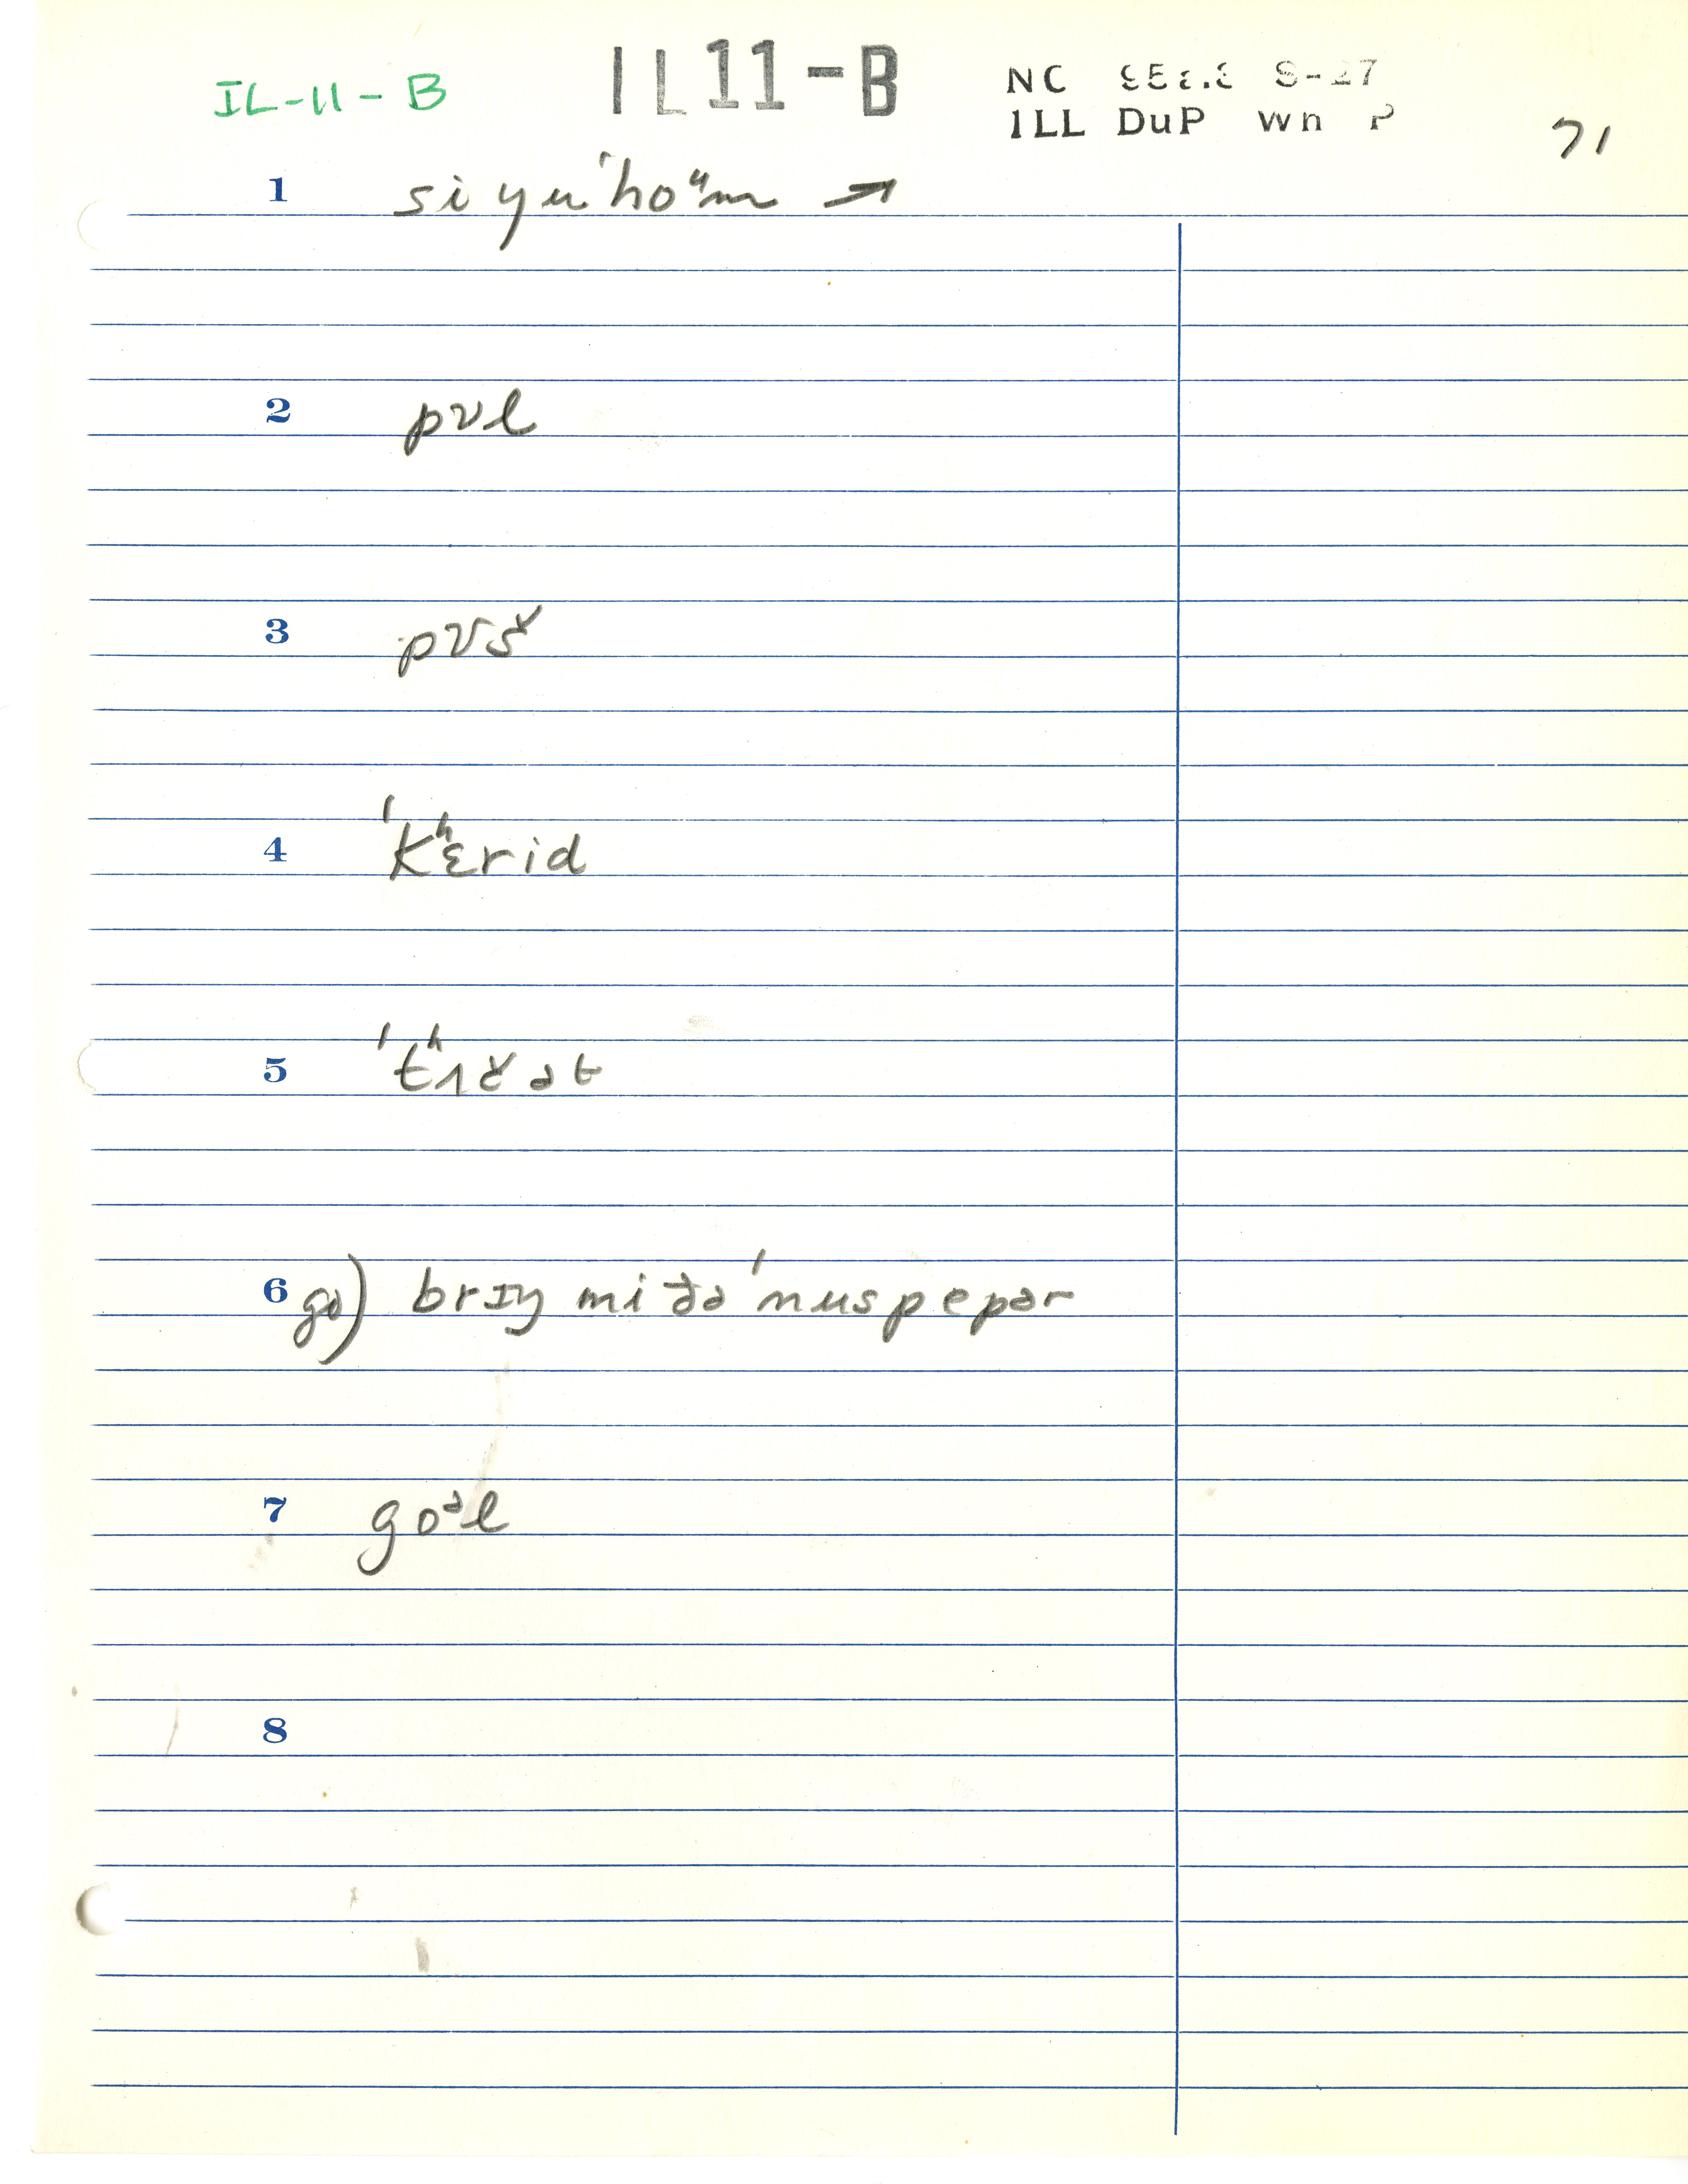 IL-11-B IL11-B NC
ILL DuP Wn P 71
1 si yu ˈhoᵘm ↗
2 pʊl
3 pʊš
4 ˈkʰɛrid
5 ˈtʰʌčət
6 go) brɪŋ mi ðə ˈnuspepər
7 goᵊl
8